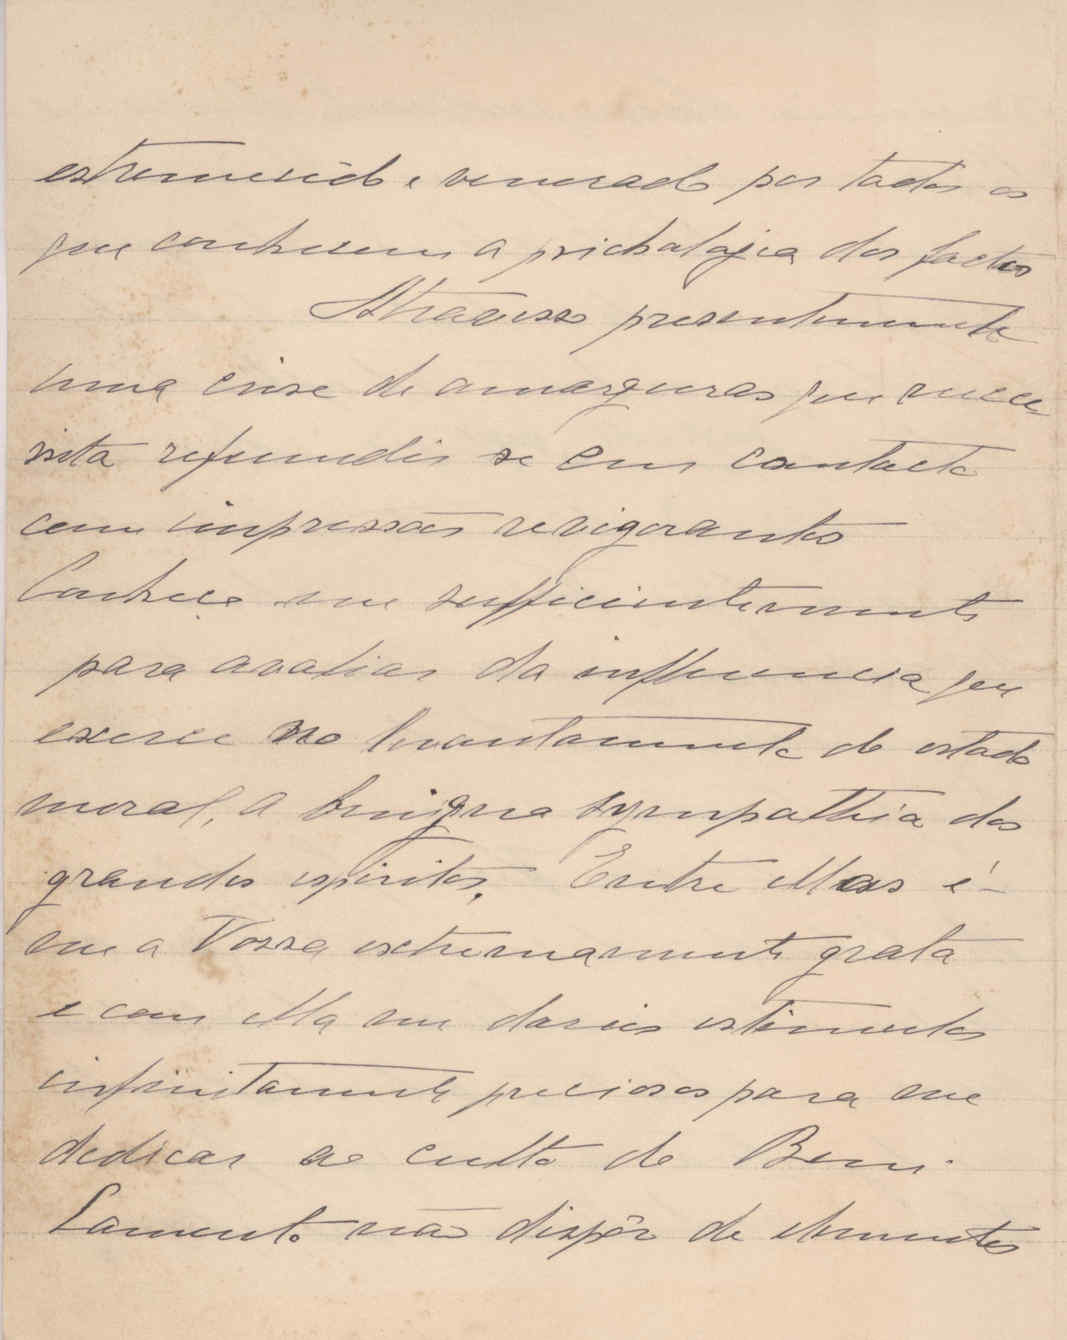 estremecido e venerado por todos os
que conhecem a psichologia dos factos
Atravesso presentemente
uma crise de amarguras que necces
sita refundir se em contacto
com impressões revigorantes
Conhece me sufficientemente
para avaliar da influencia que
exerce no levantamento do estado
moral, a benigna sympathia dos
grandes espiritos. Entre ellas é-
me a Vossa extremamente grata
e com ella me dareis estimulos
infinitamente preciosos para me
dedicar ao culto do Bem.
Lamento não dispôr de elementos